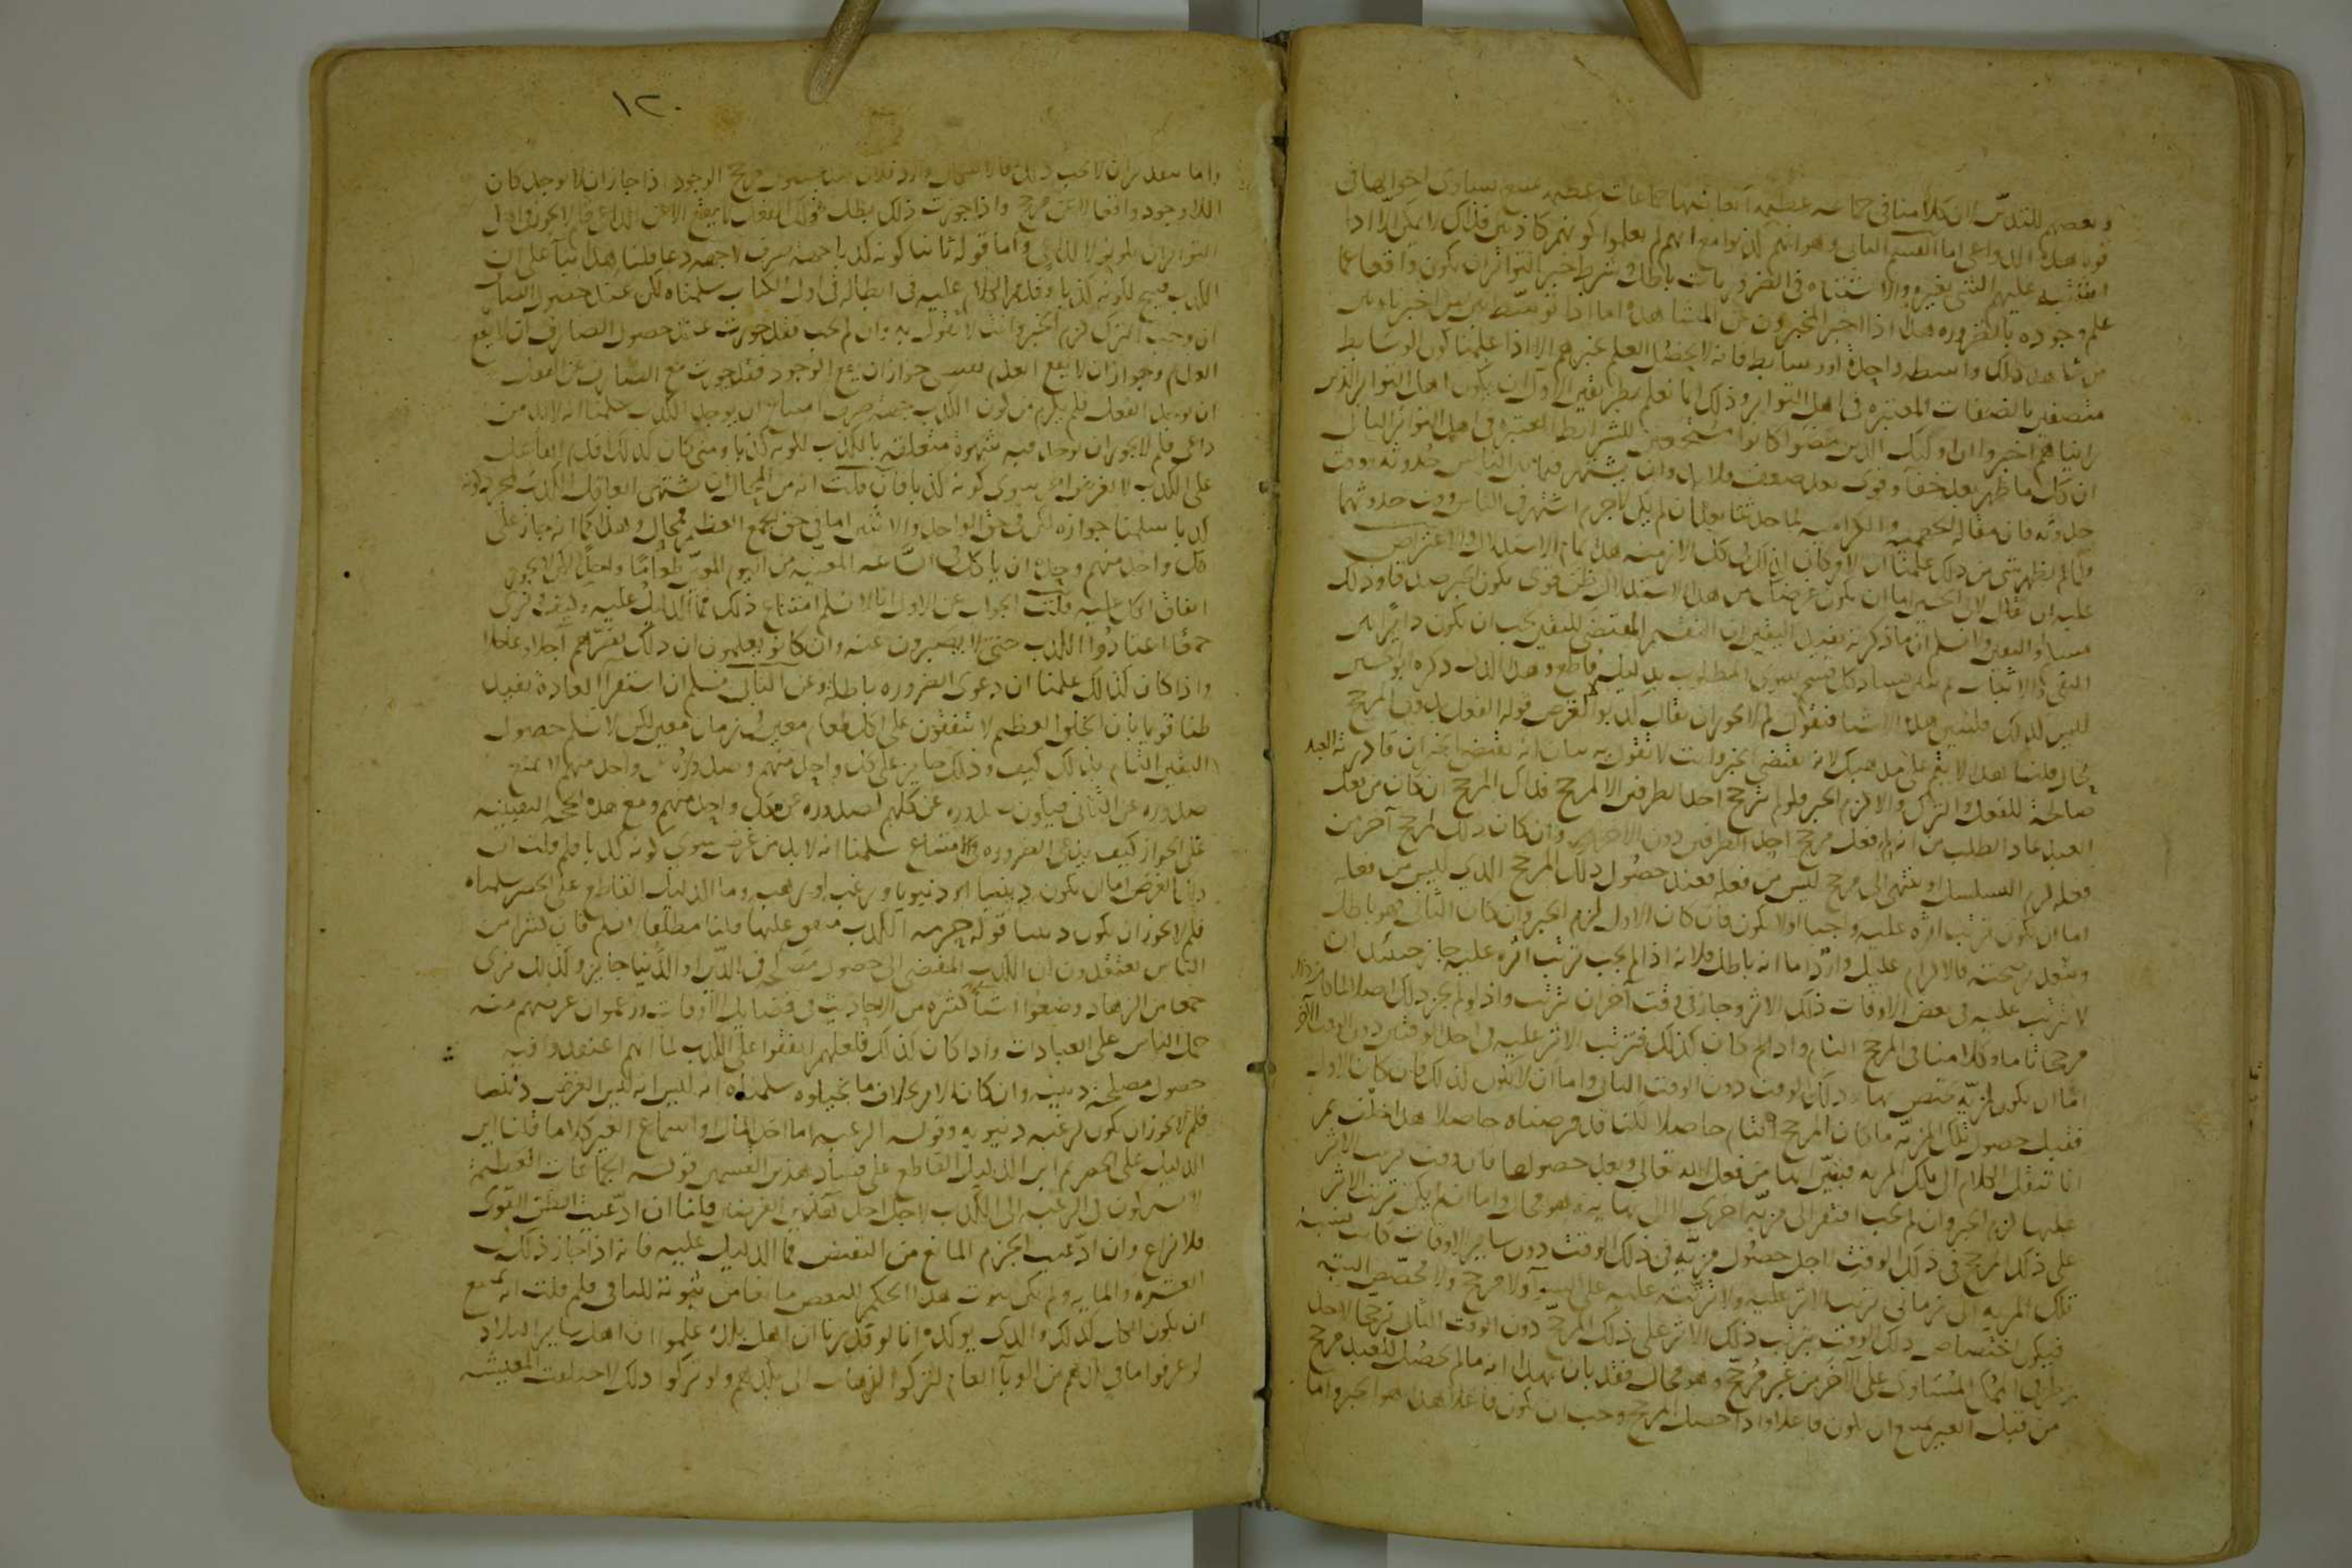 وبعضهم للتدين ان كلامنا في جماعة عظيمة ابعاضها جماعات عظيمه يمتنع تساوى احوالها في
قوة هذه الدواعى اما القسم الثانى وهو انهم كذبوا مع انهم لم يعلموا كونهم كاذبين فذاك لا يمكن الا اذا
اشتبه عليهم الشى بغيره والاشتباه في الضروريات باطل وشرط خبر التواتر ان يكون واقعا عما
علم وجوده بالضروره هذا اذا اخبر المخبرون عن المشاهدة اما اذا توسط بين من اخبرنا وبين
من شاهد ذلك واسطه واحدة او وسايط فانه لا يحصل العلم بخبرهم الا اذا علمنا كون الوسايط
متصفة بالصفات المعتبره في اهل التواتر وذلك انما نعلم بطريقين الاول ان يكون اهل التواتر الذين
رايناهم اخبروا ان اوليك الذين مضوا كانوا مستجمعين للشرايط المعتبره في اهل التواتر الثانى
ان كل ما ظهر بعد خفا وقوى بعد ضعف فلا بد وان يشتهر فيما بين الناس حدوثه ووقت
حدوثه فان مقالة الجهميه والكراميه لما حدثتا بعد ان لم تكن لا جرم اشتهر في الناس وقت حدوثهما
ولما لم يظهر شى من ذلك علمنا ان الامر كان كذلك في كل الازمنه هذا تمام الاستدلال والاعتراض
عليه ان يقال لك الخصم اما ان يكون غرضك من هذا الاستدلال ظن قوى بكون الخبر صدقا وذلك
مسلم او اليقين ولا نسلم ان ما ذكرته يفيد اليقين لان التقسيم المقتضى لليقين يجب ان يكون دايرا بين
النفى والاثبات ثم نبين فساد كل قسم سوى المطلوب بدليل قاطع وهذا الذى ذكره ابو الحسين
ليس كذلك فلنبين هذه الاشيا فنقول لم لا يجوز ان يقال كذبوا لا لغرض قوله الفعل بدون المرجح
محال قلنا هذا لا يتم على مذهبك لانه يقتضى الجبر وانت لا تقول به بيان انه يقتضى الجبر ان قادرية العبد
صالحة للفعل والترك والا لزم الجبر فلو لم يترجح احد الطرفين الا لمرجح فذلك المرجح ان كان من فعل
العبد عاد الطلب من انه لم فعل مرجح احد الطرفين دون الاخر وان كان ذلك لمرجح آخر من
فعله لزم التسلسل او ينتهى الى مرجح ليس من فعله فعند حصول ذلك المرجح الذى ليس من فعله
اما ان يكون ترتب اثره عليه واجبا او لا يكون فان كان الاول لزم الجبر وان كان الثانى فهو باطل
وبتقدير صحته فالالزام عليك وارد اما انه باطل فلانه اذا لم يجب ترتب اثره عليه جاز حينئذ ان
لا يترتب عليه في بعض الاوقات ذلك الاثر وجاز في وقت آخر ان يترتب واذا لم يجز ذلك اصلا لما كان ذلك
مرجحا تاما وكلامنا في المرجح التام واذا كان كذلك فترتب الاثر عليه في احد الوقتين دون الوقت الآخر
اما ان يكون لمزية تختص بها ذلك الوقت دون الوقت الثانى واما ان لا يكون كذلك فان كان الاول
فقبل حصول تلك المزية ما كان المرجح التام حاصلا لكنا قد فرضناه حاصلا هذا خلف ثم
انا ننقل الكلام الى تلك المزيه فنبين انها من فعل الله تعالى وبعد حصولها فان وجب ترتب الاثر
عليها لزم الجبر وان لم يجب افتقر الى مزية اخرى لا الى نهاية وهو محال واما ان لم يكن ترتب الاثر
على ذلك المرجح في ذلك الوقت لاجل حصول مزية في ذلك الوقت دون ساير الاوقات كانت نسبة
تلك المزيه الى زمانى ترتب الاثر عليه ولا ترتبه عليه على السوآ ولا مرجح ولا مخصص البته
فيكون اختصاص ذلك الوقت بترتب ذلك الاثر على ذلك المرجح دون الوقت الثانى ترجيحا لاحد
طرفى الممكن المتساوى على الآخر من غير مرجح وهو محال فقد بان بهذا انه ما لم يحصل للعبد مرجح
من قبل الغير يمتنع ان يكون فاعلا واذا حصل المرجح وجب ان يكون فاعلا وهذا هو الجبر واما
١٢٠
واما بتقدير ان لا يجب ذلك فالاشكال وارد فلان عند حصول مرجح الوجود اذا جاز ان لا يوجد كان
اللاوجود واقعا لا عن مرجح واذا جوزت ذلك بطل قولك الفعل لا يقع الا عن الداعى فلم لا يجوز في اهل
التواتر ان يكذبوا لا لداعى واما قوله ثانيا كونه كذبا جهة صرف لا جهة دعا قلنا هذا بنآ على ان
الكذب قبيح لكونه كذبا وقد مر الكلام عليه في ابطاله في اول الكتاب سلمناه لكن عند حصول الصارف
ان وجب الترك لزم الجبر وانت لا تقول به وان لم يجب فقد جوزت عند حصول الصارف ان لا يقع
العدم وجواز ان لا يقع العدم يقتضى جواز ان يقع الوجود فقد جوزت مع الصارف عن الفعل
ان يوجد الفعل فلم يلزم من كون الكذب جهة صرف امتناع ان يوجد الكذب سلمنا انه لا بد من
داعى فلم لا يجوز ان توجد فيه شهوة متعلقه بالكذب لكونه كذبا ومتى كان كذلك اقدم الفاعل
على الكذب لا لغرض آخر سوى كونه كذبا فان قلت انه من المحال ان يشتهى العاقل الكذب لمجرد كونه
كذبا سلمنا جوازه لكن في حق الواحد والاثنين اما في حق الجمع العظيم فمحال وهذا كما انه جاز على
كل واحد منهم وحده ان ياكل في الساعه المعينه من اليوم المعين طعاما واحدا لكن لا يجوز
اتفاق الكل عليه قلت الجواب عن الاول انا لا نسلم امتناع ذلك فما الدليل عليه وكيف ونرى
جمعا اعتادوا الكذب حتى لا يصبرون عنه وان كانوا يعلمون ان ذلك يضرهم آجلا وعاجلا
واذا كان كذلك علمنا ان دعوى الضروره باطله وعن الثانى نسلم ان استقرآ العادة يفيد
ظنا قويا بان الخلق العظيم لا يتفقون على اكل طعام معين في زمان معين لكن لا نسلم حصول
اليقين التام بذلك كيف وذلك جايز على كل واحد منهم وصدوره عن واحد منهم لا يمنع
صدوره عن الثانى فيكون صدوره عن كلهم كصدوره عن كل واحد منهم ومع هذه الحجة اليقينيه
على الجواز كيف يدعى الضروره في الامتناع سلمنا انه لا بد من غرض سوى كونه كذبا فلم قلت ان
ذلك الغرض اما ان يكون دينيا او دنيويا ورغبه او رهبه وما الدليل القاطع على الحصر سلمناه
فلم لا يجوز ان يكون دينيا قوله حرمة الكذب متفق عليها قلنا مطلقا لا نسلم فان كثيرا من
الناس يعتقدون ان الكذب المفضى الى حصول مصلحة في الدين او الدنيا جايز ولذلك نرى
جمعا من الزهاد وضعوا اشيآ كثيره من الاحاديث في فضايل الاوقات وزعموا ان غرضهم منه
حمل الناس على العبادات واذا كان كذلك فلعلهم اتفقوا على الكذب لما انهم اعتقدوا فيه
حصول مصلحة دينيه وان كان الامر بخلاف ما تخيلوه سلمنا انه ليس الغرض دينيا
فلم لا يجوز ان يكون لرغبه دنيويه وقوله الرغبه اما اخذ المال او اسماع الغير كلاما قلنا اين
الدليل على الحصر ثم اين الدليل القاطع على فساد هذين القسمين قوله الجماعات العظيمة
لا يشتركون في الرغبه الى الكذب لاجل احد هذين الغرضين قلنا ان ادعيت الظن القوى
فلا نزاع وان ادعيت الجزم المانع من النقيض فما الدليل عليه فانه اذا جاز ذلك في
العشرة والمايه ولم يكن ثبوت هذا الحكم للبعض مانعا من ثبوته للباقى فلم قلت انه يمتنع
ان يكون الكل كذلك والذى يوكده انا لو قدرنا ان اهل بلدة علموا ان اهل ساير البلاد
لو عرفوا ما في بلدهم من الوبآ العام لتركوا الذهاب الى بلدهم ولو تركوا ذلك لاختلت المعيشه